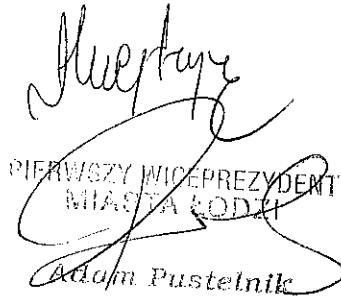 PIERWSZY WICEPREZYDENT
MIASTA ŁODZI
Adam Pustelnik